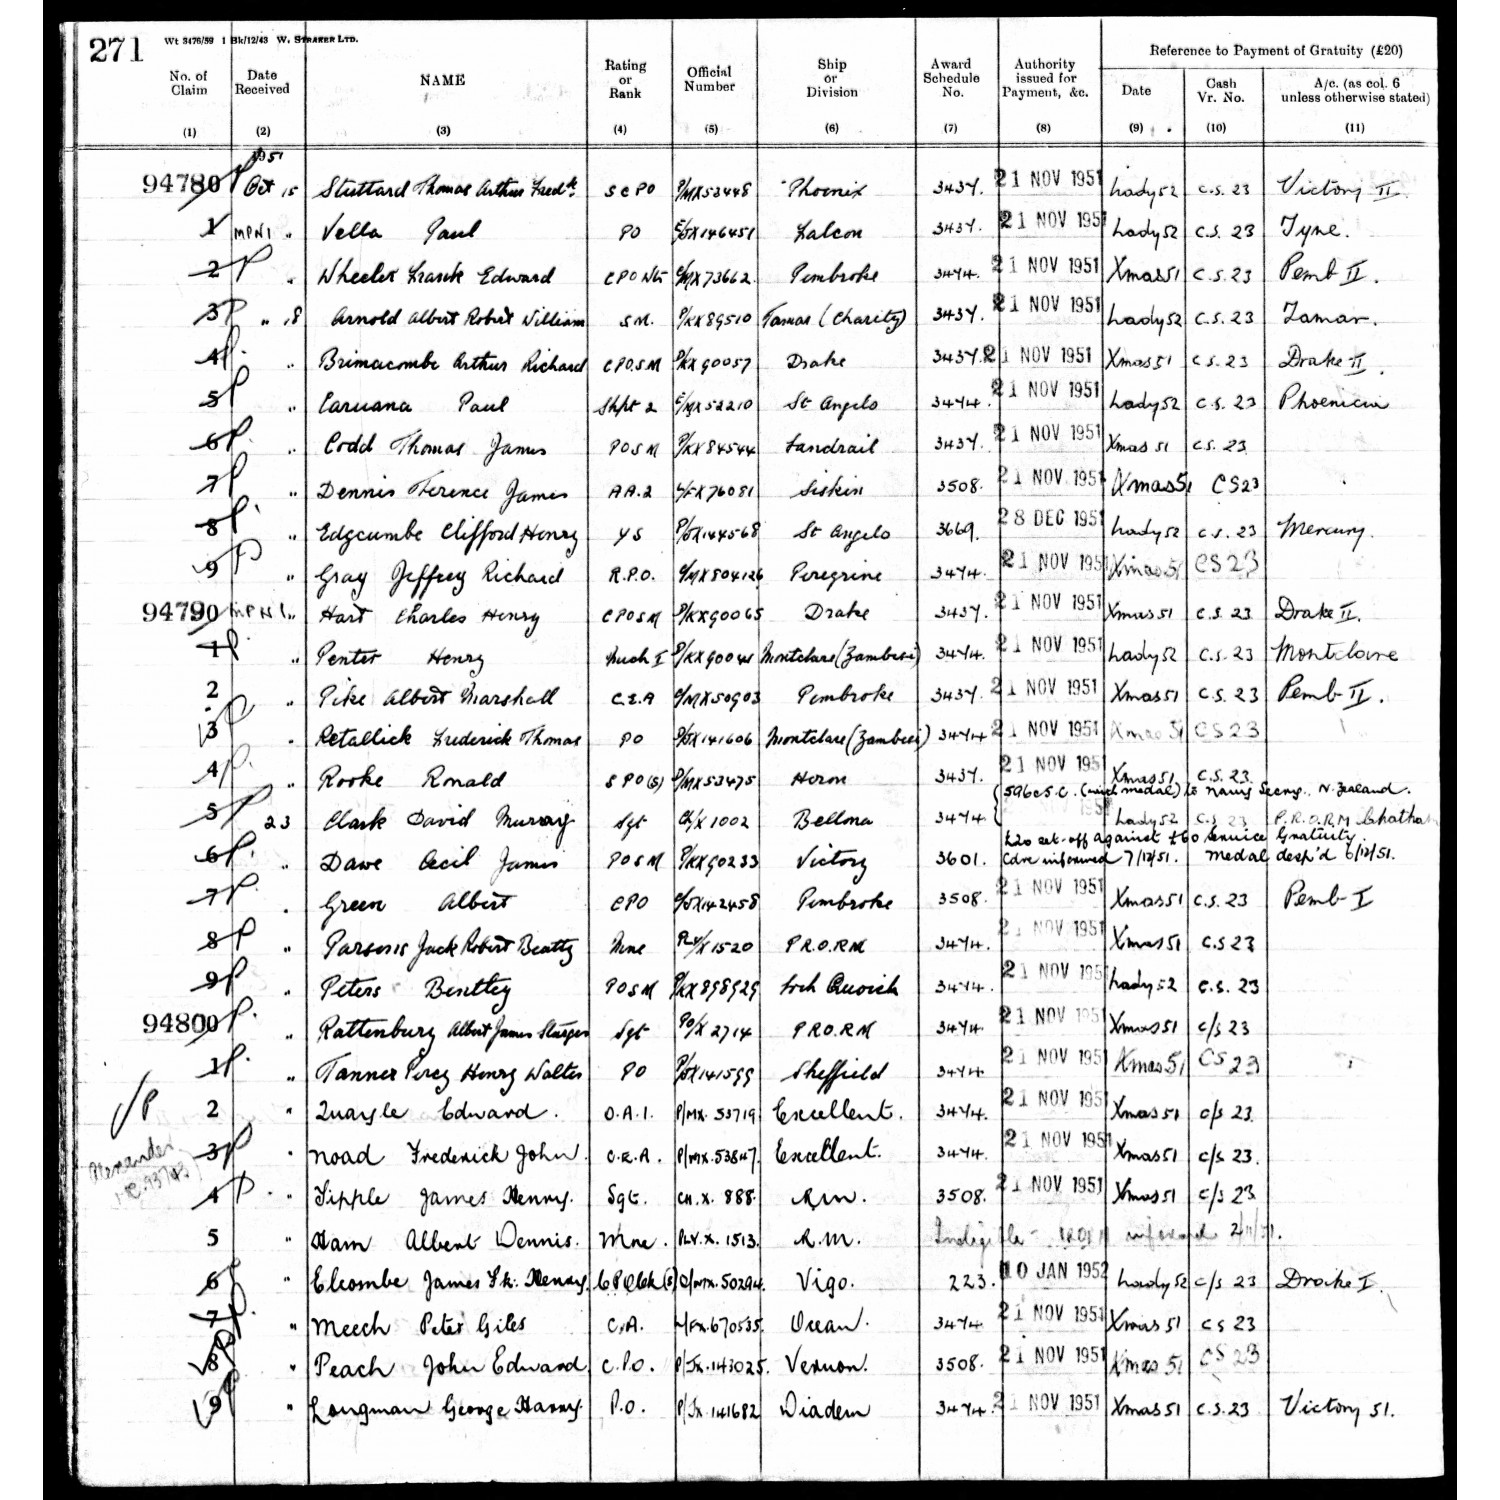 271 Wt 3476/59 1 Bk/12/43 W. STRAKER LTD.
Reference to Payment of Gratuity (£20)
No. of Claim Date Received NAME Rating or Rank Official Number Ship or Division Award Schedule No. Authority issued for Payment, &c. Date Cash Vr. No. A/c. (as col. 6 unless otherwise stated)
(1) (2) (3) (4) (5) (6) (7) (8) (9) (10) (11)
1951
94780 Oct 15 Stuttard Thomas Arthur Fredk. SCPO P/MX53448 Phoenix 3437. 21 NOV 1951 Lady 52 C.S. 23 Victory II
1 MPN1 " Vella Paul PO E/JX146451 Falcon 3437. 21 NOV 1951 Lady 52 C.S. 23 Tyne.
2 " Wheeler Frank Edward CPO Wtr C/MX73662 Pembroke 3474. 21 NOV 1951 Xmas 51 C.S. 23 Pemb II.
3 " 18 Arnold Albert Robert William SM. P/KX89510 Tamar (Charity) 3437. 21 NOV 1951 Lady 52 C.S. 23 Tamar.
4 " Brimacombe Arthur Richard CPO.SM P/KX90057 Drake 3437. 21 NOV 1951 Xmas 51 C.S. 23 Drake II.
5 " Caruana Paul Shpt 2 E/MX52210 St Angelo 3474. 21 NOV 1951 Lady 52 C.S. 23 Phoenicia
6 " Codd Thomas James POSM P/KX84544 Landrail 3437. 21 NOV 1951 Xmas 51 C.S. 23
7 " Dennis Terence James AA.2 L/FX76081 Siskin 3508. 21 NOV 1951 Xmas 51 CS23
8 " Edgcumbe Clifford Henry YS P/JX144568 St Angelo 3669. 28 DEC 1951 Lady 52 C.S. 23 Mercury.
9 " Gray Jeffrey Richard R.P.O. C/MX804126 Peregrine 3474. 21 NOV 1951 Xmas 51 CS 23
94790 MPN1 " Hart Charles Henry CPOSM P/KX90065 Drake 3437. 21 NOV 1951 Xmas 51 C.S. 23 Drake II.
1 " Penter Henry Mech I P/KX90041 Montclare (Zambesi) 3474. 21 NOV 1951 Lady 52 C.S. 23 Montclare
2 " Pike Albert Marshall C.E.A C/MX50903 Pembroke 3437. 21 NOV 1951 Xmas 51 C.S. 23 Pemb II.
3 " Retallick Frederick Thomas PO P/JX141606 Montclare (Zambesi) 3474 21 NOV 1951 Xmas 51 CS 23
4 " Rooke Ronald SPO(S) P/MX53475 Heron 3437. 21 NOV 1951 Xmas 51 C.S. 23
596c S.C. (with medal) to Navy Secy. N. Zealand.
5 23 Clark David Murray Sgt Ch/X1002 Bellona 3474 Lady 52 C.S 23 P.R.O.R.M Chatham
£20 set-off against £60 Service Gratuity.
6 " Dawe Cecil James POSM P/KX90233 Victory 3601. Cdre informed 7/12/51. Medal desp'd 6/12/51.
7 " Green Albert CPO C/JX142458 Pembroke 3508. 21 NOV 1951 Xmas 51 C.S. 23 Pemb I
8 " Parsons Jack Robert Beatty Mne Ply/X1520 P.R.O.R.M 3474. 21 NOV 1951 Xmas 51 C.S 23
9 " Peters Bentley POSM P/KX898929 Loch Quoich 3474. 21 NOV 1951 Lady 52 C.S. 23
94800 " Rattenbury Albert James Sturges Sgt PO/X 2714 P.R.O.R.M 3474. 21 NOV 1951 Xmas 51 C/S 23
1 " Tanner Percy Henry Walter PO P/JX141599 Sheffield 3474. 21 NOV 1951 Xmas 51 CS 23
2 " Quayle Edward. O.A.1. P/MX. 53719 Excellent. 3474. 21 NOV 1951 Xmas 51 C/S 23.
Alexander
3 " Noad Frederick John. O.E.A. P/MX.53847. Excellent. 3474. 21 NOV 1951 Xmas 51 C/S 23.
4 " Tipple James Henry. Sgt. CH.X. 888. R.M. 3508. 21 NOV 1951 Xmas 51 C/S 23.
5 " Ham Albert Dennis. Mne. PLY.X. 1513. R.M. Ineligible - PRORM informed 2/11/51.
6 " Elcombe James Fk. Henry. CPO Ck (S) C/MX. 50294. Vigo. 223. 10 JAN 1952 Lady 52 C/S 23 Drake I.
7 " Meech Peter Giles C.A. L/FX.670535. Ocean. 3474. 21 NOV 1951 Xmas 51 CS 23
8 " Peach John Edward C.P.O. P/JX.143025. Vernon. 3508. 21 NOV 1951 Xmas 51 CS 23
9 " Longman George Harry. P.O. P/JX.141682 Diadem 3474. 21 NOV 1951 Xmas 51 C.S. 23 Victory 51.